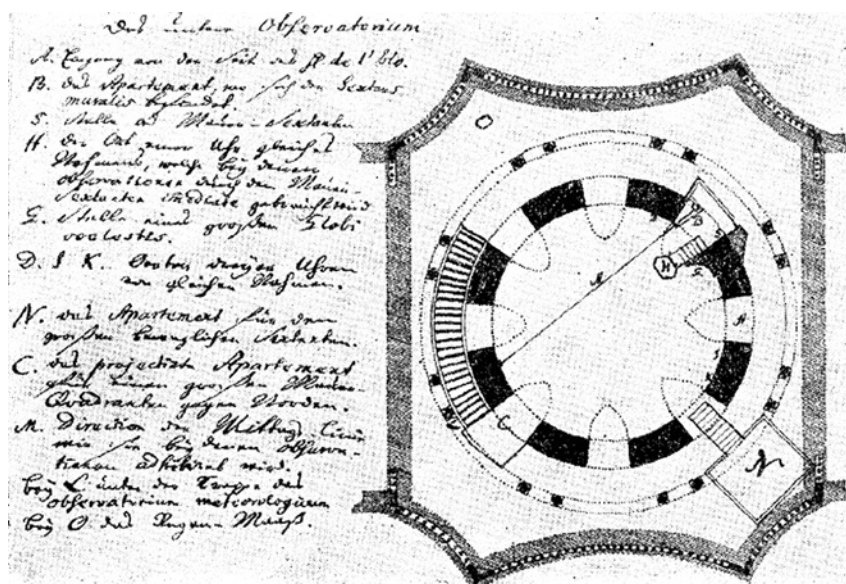 Das untere Observatorium
A. Eingang von der Seit des H. de l'Isle.
B. das Apartement, wo sich der Sextans
muralis befindet.
S. Stelle des Mauer-Sextanten
H. der Ort einer Uhr gleiches
Nahmens, welche bey denen
observationen durch den Mauer-
Sextanten immediate gebraucht wird
G. Stelle eines großen Globi
coelestis.
D. I K. dreyer Uhren
von gleichen Nahmen.
N. das Apartement für den
großen beweglichen Sextanten.
C. das projectirte Apartement
für einen großen Mauer-
Quadranten gegen Norden.
M. Direction der Mittags Linie
wie sie bey denen observa-
tionen adhibirt wird.
bey L unter der Treppe das
observatorium meteorologicum
bey O das Regen-Maaß.
O
B
D
S
H
G
M
A
I
K
L
C
N